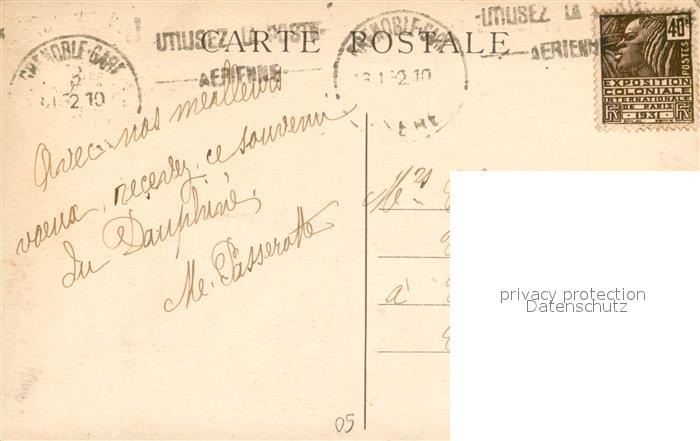 CARTE POSTALE
GRENOBLE-GARE
UTILISEZ LA POSTE
AERIENNE
GRENOBLE-GARE
UTILISEZ LA
AERIENNE
40c
POSTES
EXPOSITION
COLONIALE
INTERNATIONALE
DE PARIS
1931
Avec nos meilleurs
voeux, recevez, ce souvenir
du Dauphiné,
Me. Passerotte
à
privacy protection
Datenschutz
05